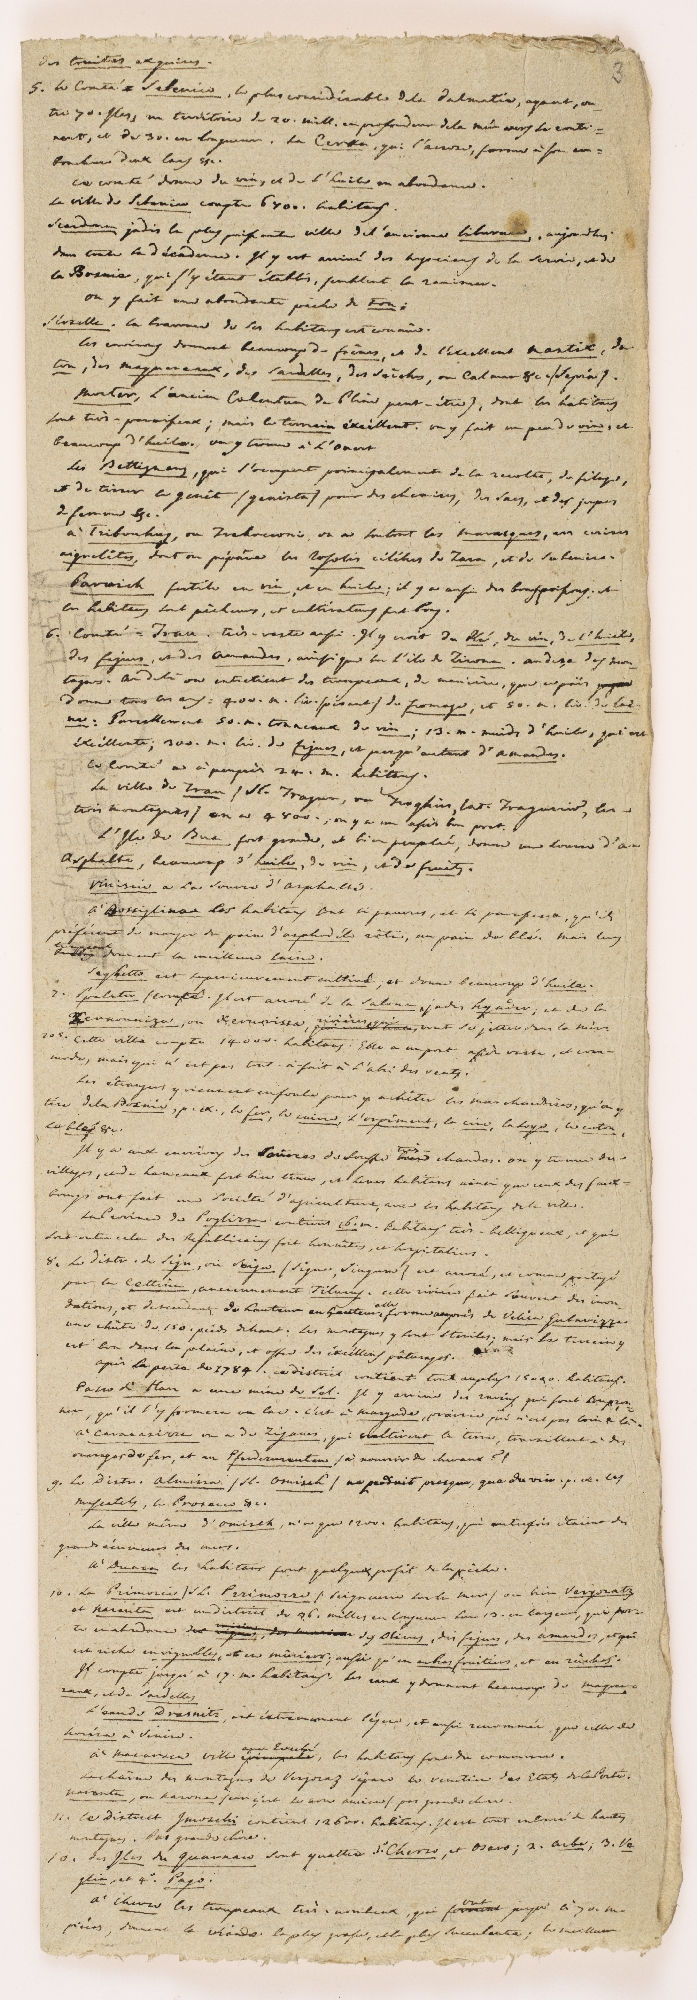 3
des truites exquises.
5. Le Comté Sebenico, le plus considérable de la Dalmatie, ayant, ou
tre 70. Iles, un territoire de 20. mill. en profondeur de la mer vers le conti-
nent, et de 30. en longueur. La Cerca, qui l'arrose, forme à son em-
bouchure deux lacs &c.
Ce comté donne du vin, et de l'huile en abondance.
La ville de Sebenico compte 6700. habitans.
Scardona jadis la plus puissante ville de l'ancienne Liburnie, aujourdhui
dans toute la décadence. Il y est arrivé des négocians de la Servie, et de
la Bosnie, qui s'y étant établis, semblent la ranimer.
on y fait une abondante pêche de ton.
la bravoure de ses habitans est connue.
Les environs donnent beaucoup de frênes, et de l'excellent mastix, du
ton, des maquereaux, des sardelles, des sèches, ou Calmar &c (Sepia).
Morter, (l'ancien Colentum de Pline peut-être), dont les habitans
sont très-paresseux; mais le terrain excellent. on y fait un peu de vin, et
beaucoup d'huile. on y trouve à l'Ouest
Les Bettignans, qui s'occupent principalement de la récolte, du filage,
et de tisser le genêt (genista) pour des chemises, des sacs, et des jupes
de femme &c.
à Tribouhug, ou on a surtout les marasques, ou cerises
aigrelettes, dont on prépare les rosolis célèbres de Zara, et de Sebenico.
Parvich fertile en vin, et en huile; il y a aussi des bons poissons. et
les habitans sont pêcheurs, et cultivateurs fort bons.
6. Comté Trau. très-vaste aussi. Il y croit du blé, du vin, de l'huile,
des figues, et des amandes, ainsi que sur l'île de Zirona. au deça des mon-
tagnes. Au delà on entretient des troupeaux, de manière, que ce païs
donne tous les ans: 400. m. liv. (pesant) de fromage, et 50. m. liv. de lai-
ne: Pareillement 50. m. tonneaux de vin; 13. m. muids d'huile, qui est
excéllente; 300. m. liv. de figues, et presqu'autant d'amandes.
Le Comté a à peuprès 24. m. habitans.
La ville de Trau (Sl. Tragur, ou Troghir, lat. Tragurium, les
trois montagnes) en a 4800.; on y a un assés bon port.
L'Ile de Bua, fort grande, et bien peuplée, donne une source d'
asphalte, beaucoup d'huile, du vin, et des fruits.
Vinisce a la source d'asphalte.
à Bossiglina les habitans sont si pauvres, et si paresseux, qu'ils
préfèrent de manger du pain d'asphodèle rôtie, au pain de blé. Mais leurs
donnent la meilleure laine.
Seghetto est supérieurement cultivé, et donne beaucoup d'huile.
7. Spalatro (comté. Il est arrosé de la Salona, jadis Hyader, et de la
Xernovniza, ou Xernovissa, vont se jetter dans la mer.
Cette ville compte 14000. habitans. Elle a un port assés vaste, et com-
mode, mais qui n'est pas tout-à-fait à l'abri des vents.
Les étrangers y viennent en foule pour y acheter les marchandises, qu'on y
tire de la Bosnie, p. ex., le fer, le cuivre, l'orpiment, la cire, la soye, le coton,
Le blé &c.
Il y a aux environs des Sources de Soufre très chaudes. on y trouve des
villages, et des hameaux fort bien tenus, et leurs habitans ainsi que ceux des faux-
bourgs ont fait une Société d'agriculture, avec les habitans de la ville.
La Province de Poglizza contient 16 m. habitans très-belliqueux, et qui
sont outre cela des Républicains fort honnêtes, et hospitaliers.
8. Le Distr. de Sign, ou Seign (Signo, Singum) est arrosé, et comme partagé
par la Cettina, anciennement Tilurus. cette rivière fait souvent des inon-
dations, et descendant de hauteur en hauteur elle forme auprès de Velica Gubavizza
une chûte de 150. pieds de haut. Les montagnes y sont steriles; mais le terrein y
est bon dans la plaine, et offre des excéllens pâturages.
après la perte de 1784. ce district contient tout au plus 15000. habitans.
Passo d' Han a une mine de Sel. Il y arrive des ravins, qui font soupçon-
ner, qu'il s'y formera un lac. c'est à Margude, prairie qui n'est pas loin de là.
à Caracasizza on a de Zigaunes, qui cultivent la terre, travaillent à des
ouvrages de fer, et au Pferderennten (à nourrir de chevaux?)
9. Le Distr. Almissa (Sl. Omisch) ne produit presque, que du vin. p. ex. les
muscatels, le Prosecco &c.
La ville même d'Omisch, n'a que 1200. habitans, qui autrefois étaient des
grands écumeurs des mers.
A Duara les habitans font quelque profit de la pêche.
10. La Primorie (Sl. Primorie (Seigneurie sur la mer) ou bien Vergoratz
et Narenta est un district de 36. milles en longueur sur 13. en largeur, qui por-
te en abondance des des Olives, des figues, des amandes, et qui
est riche en vignobles, et en mûriers; aussi qu'en arbres fruitiers, et en ruches.
Il compte jusqu'à 17. m. habitans. Les eaux y donnent beaucoup de maque-
raux, et de sardelles.
L'eau de Drasnitz, est extrêmement légere, et aussi renommée que celle de
Nocera à Venise.
à Macarsca ville avec Evêché, les habitans font du commerce.
La chaine des montagnes de Vergoraz sépare le vénitien des Etats de la Porte.
Narenta, ou Narona jouissait pas grande chose.
11. Le District Imoschi contient 12600. habitans. Il est tout entouré de hautes
montagnes. Pas grande chose.
10. Des Iles du Quarnaro sont quattre 1° Cherso, et Osero; 2. Arbe; 3. Ve
glia, et 4°. Pago.
A Cherso les troupeaux très-nombreux, qui vont jusqu' à 70. m.
pièces, donnent la viande. la plus grasse, et la plus succulente; la meilleure